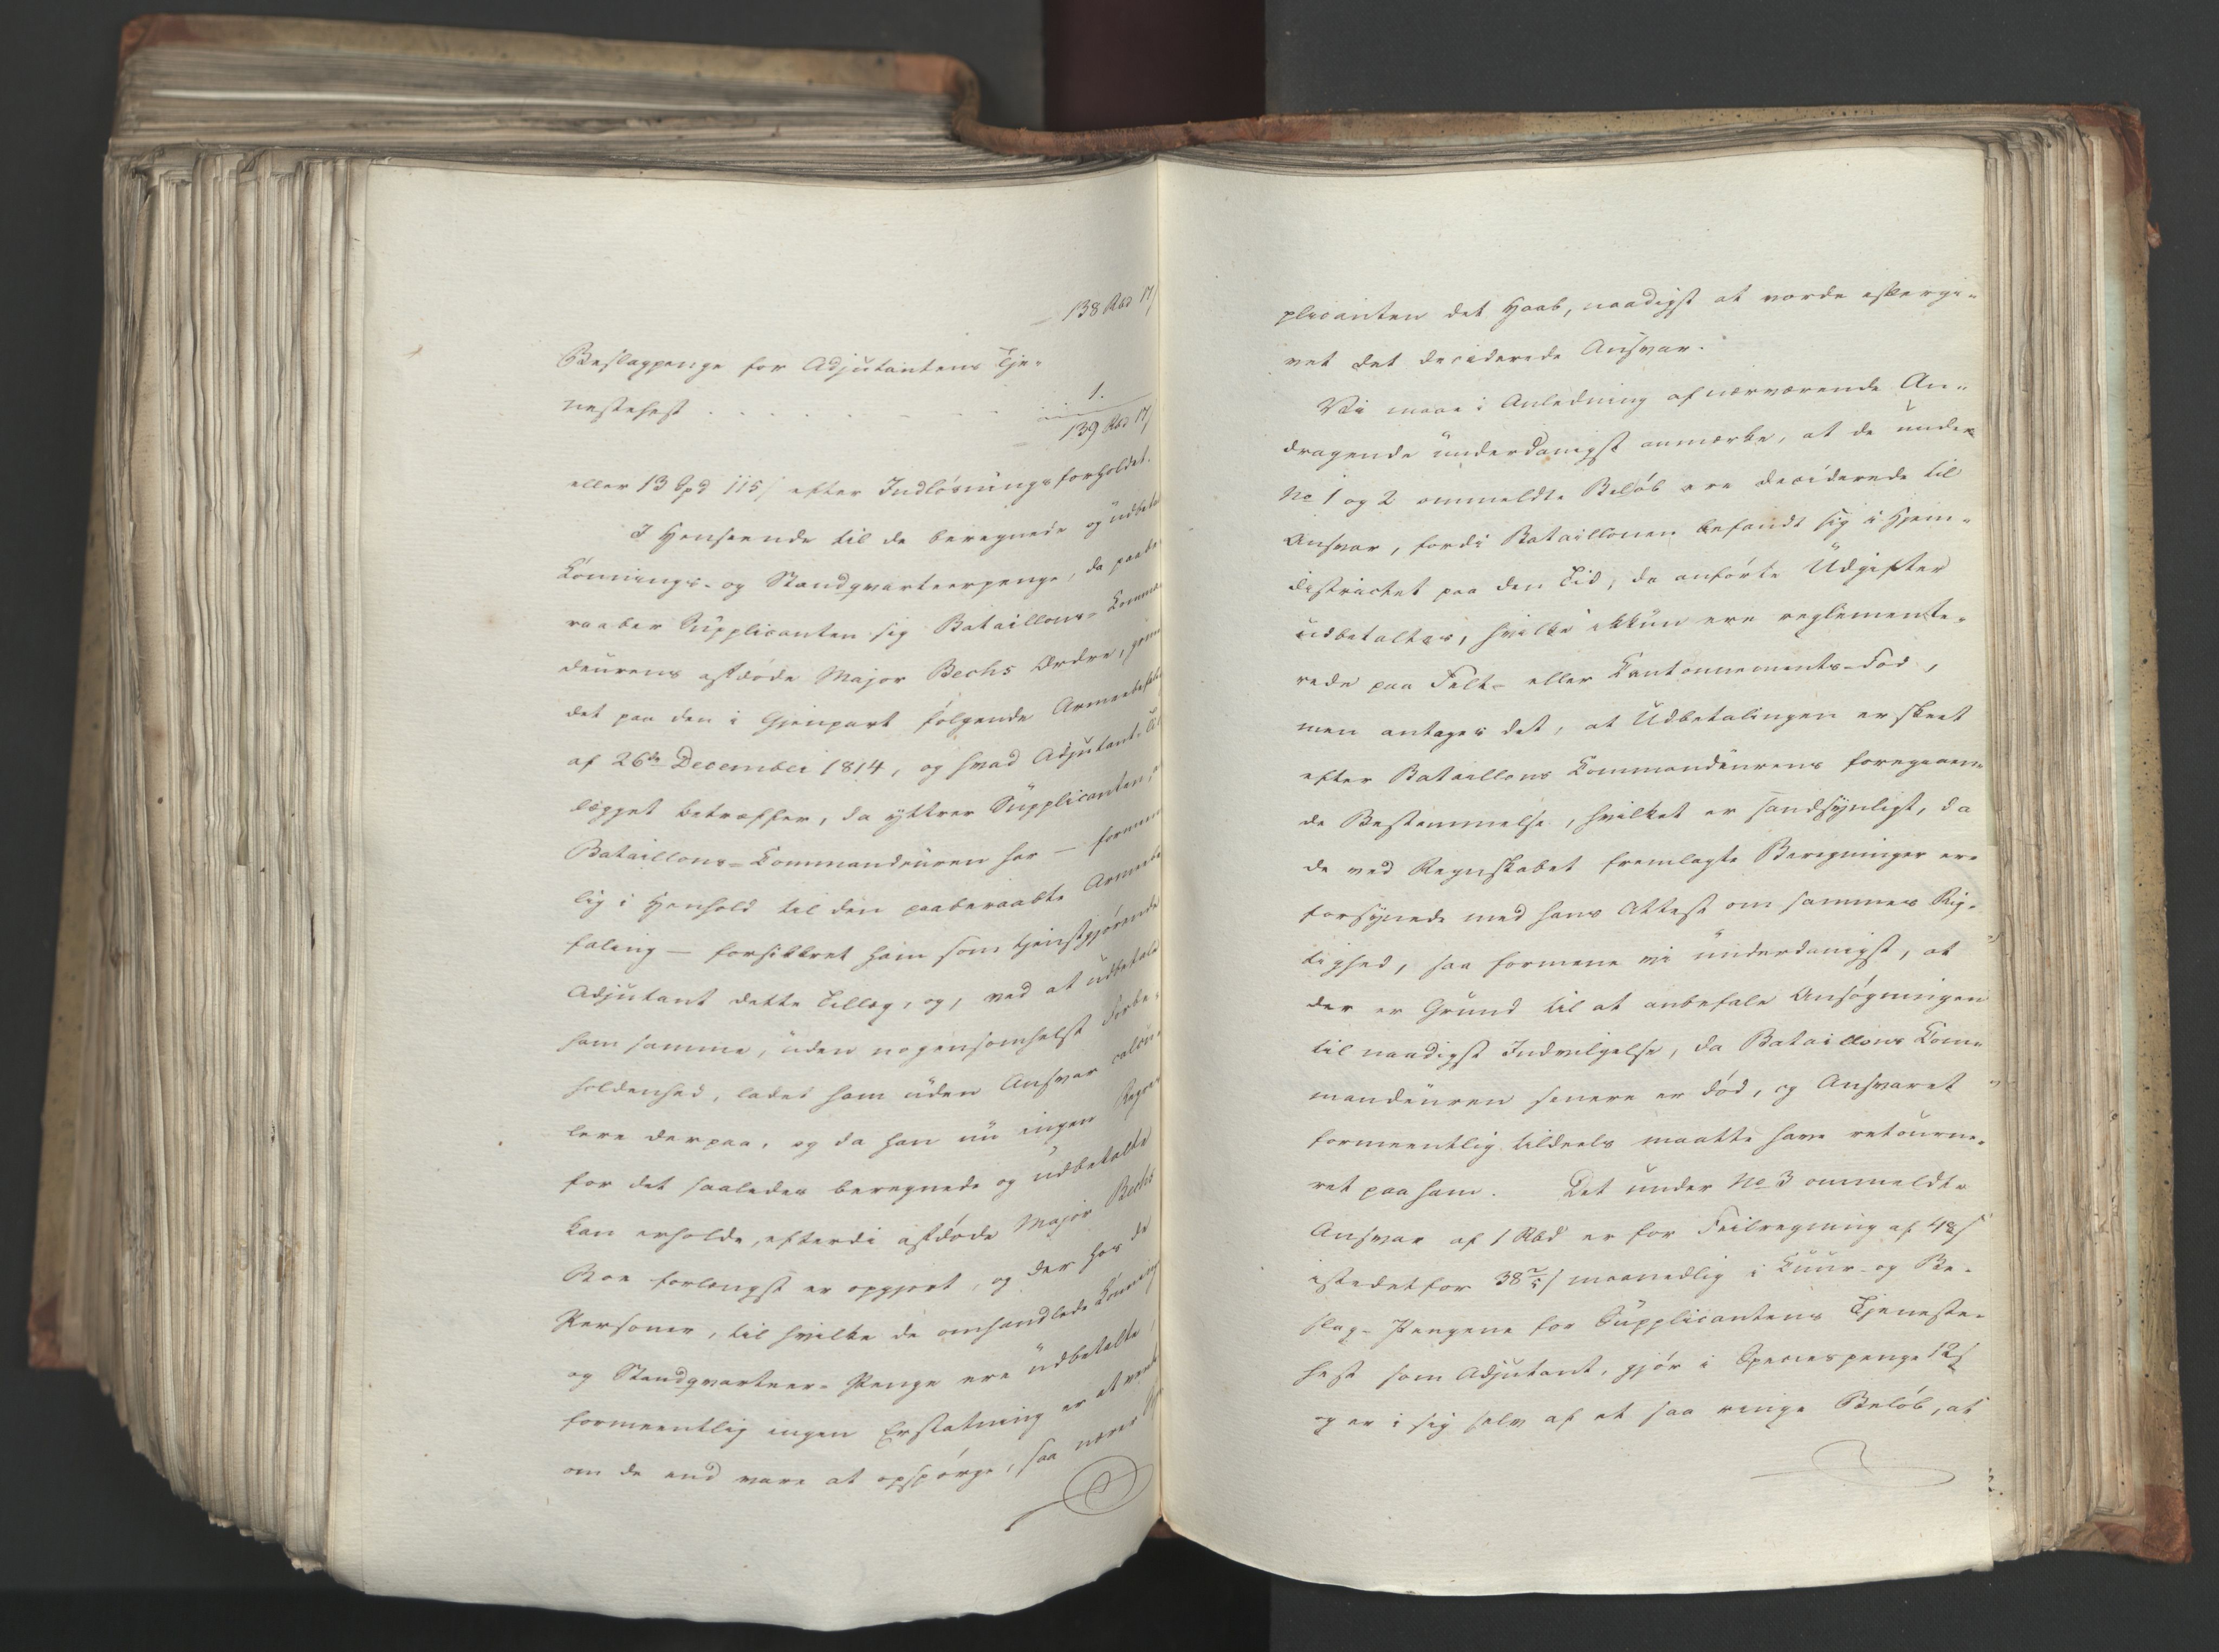 138 Rbd 17
Beslagpenge for Adjutantens Tje-
nestehest . . . . . . . 1.
139 Rbd 17
eller 13 Spd 115 ſ efter Indlösningsforholdet.
I Henseende til de beregnede og udbetal
Lönnings- og Standqvarteerpenge, da paabe
raaber Supplicanten sig Bataillons-Comman
deurens afdöde Major Bechs Ordre,
det paa den i Gjenpart fölgende Armeebefal
af 26de December 1814, og hvad Adjutant-Til
lægget betræffer, da yttrer Supplicanten, at
Bataillons-Commandeuren har — formeent
lig i Henhold til den paaberaabte Armeebe
faling — forsikkret ham som tjenstgjörende
Adjutant dette Tillæg, og, ved at udbetale
ham samme, uden nogensomhelst Forbe-
holdenhed, ladet ham uden Ansvar
lere derpaa, og da han nu ingen Regres
for det saaledes beregnede og udbetalte
kan erholde, efterdi afdöde Major Bechs
Boe forlængst er opgjort, og der hos de
Personer, til hvilke de omhandlede Lönning
og Standqvarteer-Penge ere udbetalte,
formeentlig ingen Erstatning er at vente
om de end vare at opspörge, saa nærer
plicanten det Haab, naadigst at vorde eftergi-
vet det deciderede Ansvar.
Vi maae i Anledning af nærværende An-
dragende underdanigst anmærke, at de under
No 1 og 2 ommeldte Belöb ere deciderede til
Ansvar, fordi Bataillonen befandt sig i Hjem-
districtet paa den Tid, de anförte Udgifter
udbetaltes, hvilke ikkun ere reglemente-
rede paa Felt- eller Cantonnements-Fod,
men antages det, at Udbetalingen er skeet
efter Bataillons Commandeurens foregaaen-
de Bestemmelse, hvilket er sandsynligt, da
de ved Regnskabet fremlagte Beregninger ere
forsynede med hans Attest om sammes Rig-
tighed, saa formene vi underdanigst, at
der er Grund til at anbefale Ansögningen
til naadigst Indvilgelse, da Bataillons Com-
mandeuren senere er död, og Ansvaret
formeentlig tildeels maatte have retourne-
ret paa ham. Det under No 3 ommeldte
Ansvar af 1 Rbd er for Feilregning af 48 ſ
istedetfor 38 2/5 ſ maanedlig i Cuur- og Be-
slag-Pengene for Supplicantens Tjeneste-
hest som Adjutant, gjör i Speciespenge 12 ſ
og er i sig selv af et saa ringe Belöb, at